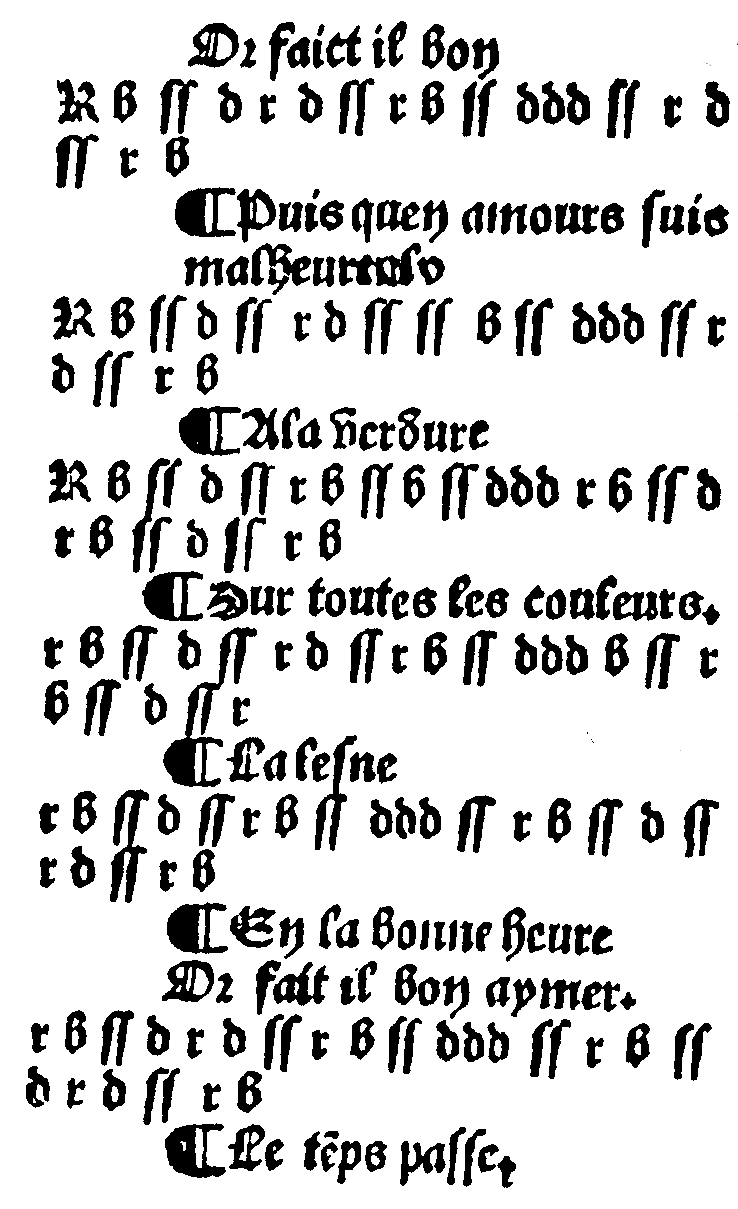 Or faict il bon
R b ſſ d r d ſſ r b ſſ ddd ſſ r d
ſſ r b
¶Puis quen amours suis
malheureulx
R b ſſ d ſſ r d ſſ ſſ b ſſ ddd ſſ r
d ſſ r b
¶A la verdure
R b ſſ d ſſ r b ſſ b ſſ ddd r b ſſ d
r b ſſ d ſſ r b
¶Sur toutes les couleurs.
r b ſſ d ſſ r d ſſ r b ſſ ddd b ſſ r
b ſſ d ſſ r
¶La lesne
r b ſſ d ſſ r b ſſ ddd ſſ r b ſſ d ſſ
r d ſſ r b
¶En la bonne heure
Or fait il bon aymer.
r b ſſ d r d ſſ r b ſſ ddd ſſ r b ſſ
d r d ſſ r b
¶Le tēps passe.